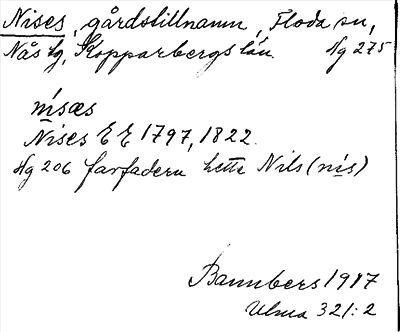 Nises, gårdstillnamn, Floda sn,
Nås tg, Kopparbergs län. Ag 275
nisæs
Nises E E 1797, 1822.
Ag 206 farfadern hette Nils (nis)
Bannbers 1917
Ulma 321:2